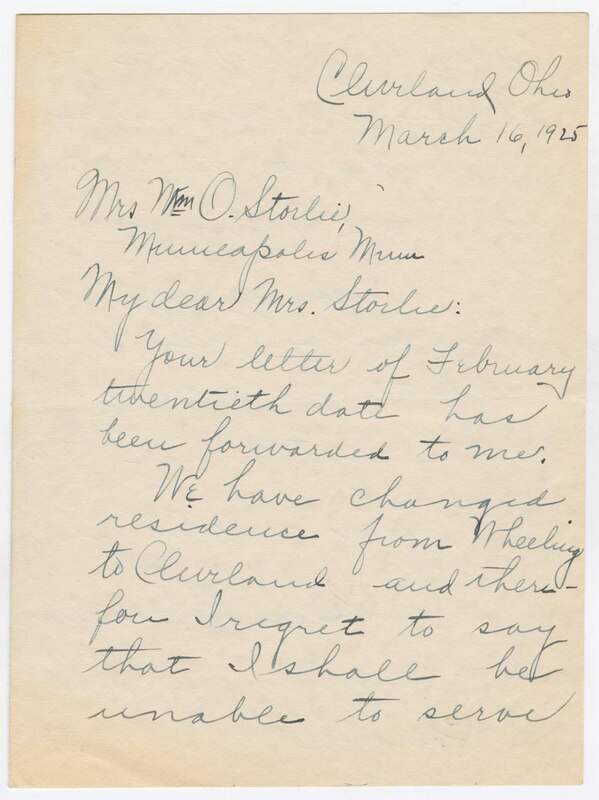 Cleveland, Ohio
March 16, 1925
Mrs Wm O. Storlie,
Minneapolis Minn
My dear Mrs. Storlie:
Your letter of February
twentieth date has
been forwarded to me.
We have changed
residence from Wheeling
to Cleveland and there-
fore I regret to say
that I shall be
unable to serve